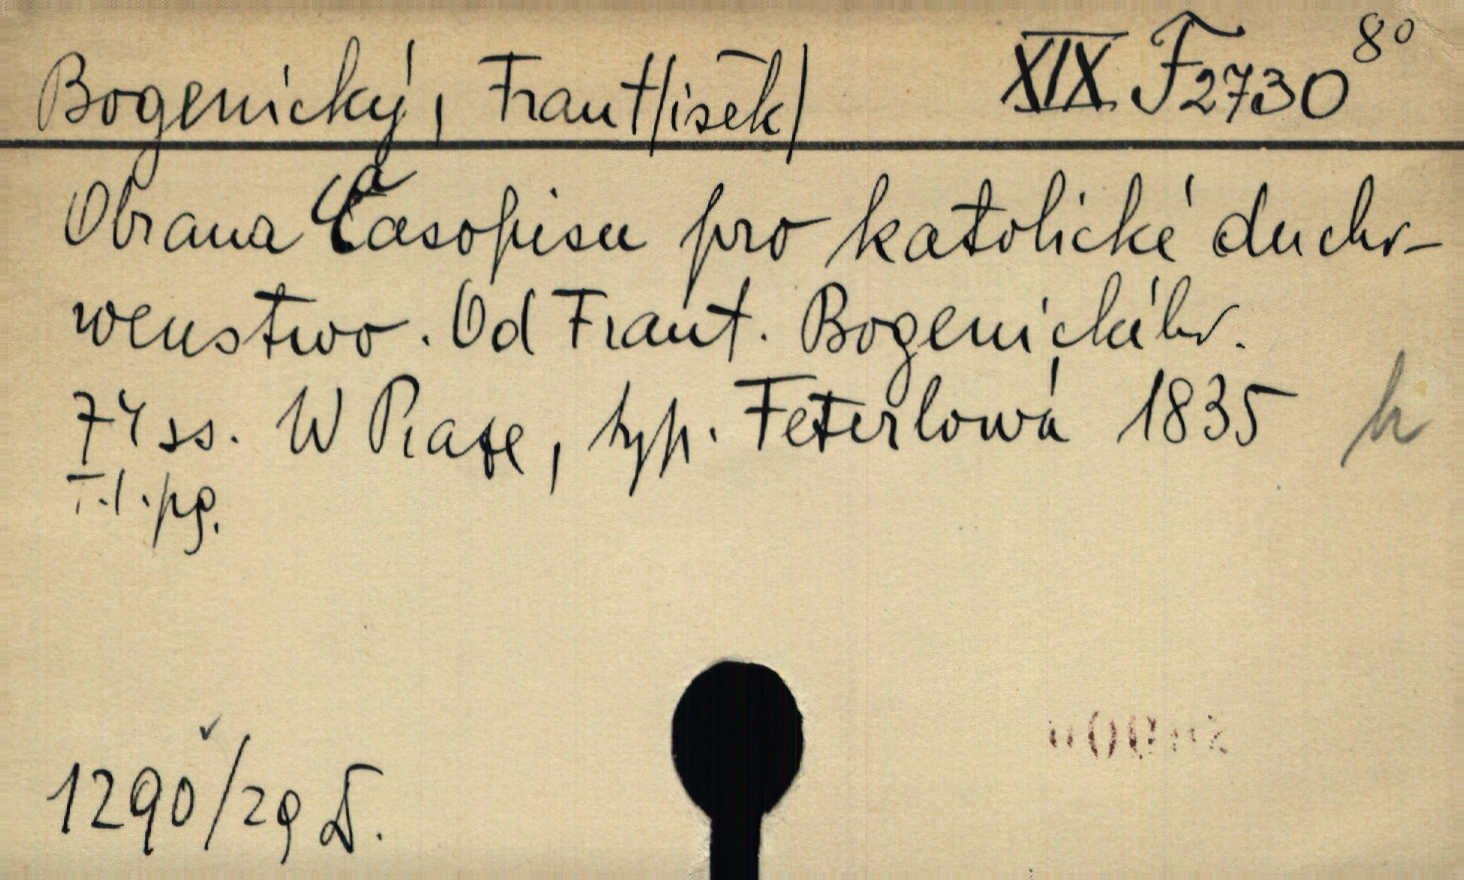 Bogenický, Frant/išek/ XIX F 2730 8°
Obrana Časopisu pro katolické ducho-
wenstwo. Od Frant. Bogenického.
74 ss. W Praze, typ. Feterlowá 1835
T.l.pg.
1290/29 D.